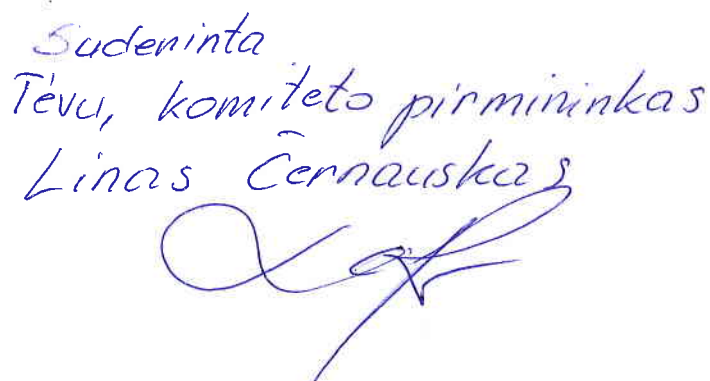 Suderinta
Tėvų komiteto pirmininkas
Linas Černauskas